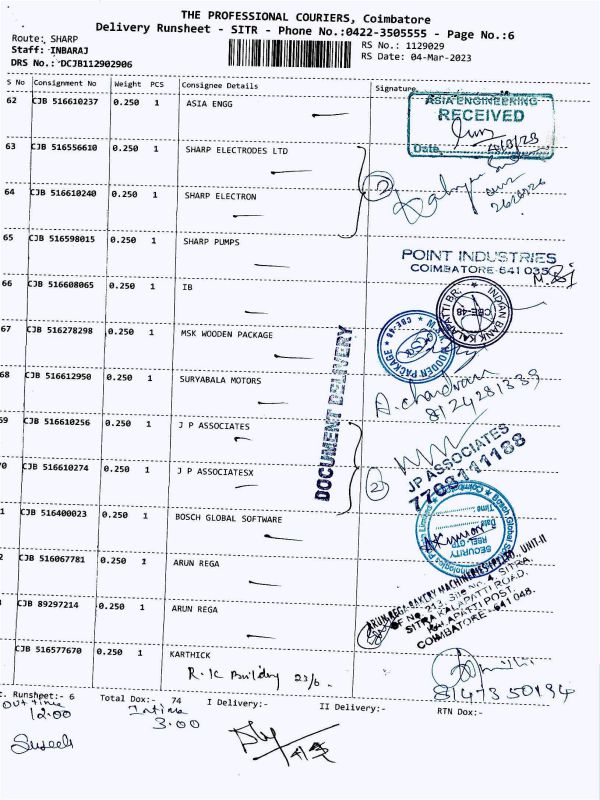 THE PROFESSIONAL COURIERS, Coimbatore
Delivery Runsheet - SITR - Phone No.:0422-3505555 - Page No.:6
Route: SHARP
RS No.: 1129029
Staff: INBARAJ
RS Date: 04-Mar-2023
DRS No.: DCJB112902906
S No Consignment No Weight PCS Consignee Details Signature
62 CJB 516610237 0.250 1 ASIA ENGG
ASIA ENGINEERING
RECEIVED
Date
63 CJB 516556610 0.250 1 SHARP ELECTRODES LTD
2
64 CJB 516610240 0.250 1 SHARP ELECTRON
65 CJB 516598015 0.250 1 SHARP PUMPS
POINT INDUSTRIES
COIMBATORE-641 035
66 CJB 516608065 0.250 1 IB
INDIAN BANK KALAPATTI BR.
CBE-48
67 CJB 516278298 0.250 1 MSK WOODEN PACKAGE
M.S.K WOODER PACKAGE
CBE-48
DOCUMENT DELIVERY
68 CJB 516612950 0.250 1 SURYABALA MOTORS
A. chandran
8124281339
69 CJB 516610256 0.250 1 J P ASSOCIATES
JP ASSOCIATES
7708111188
70 CJB 516610274 0.250 1 J P ASSOCIATESX
2
1 CJB 516400023 0.250 1 BOSCH GLOBAL SOFTWARE
SECURITY
Date
Time
2 CJB 516067781 0.250 1 ARUN REGA
ARUN REGA BAKERY MACHINERIES PVT LTD., UNIT-II
SF No. 213, Site No. 4, SITRA
SITRA KALAPATTI ROAD,
KALAPATTI POST
COIMBATORE - 641 048.
CJB 89297214 0.250 1 ARUN REGA
CJB 516577670 0.250 1 KARTHICK
R.K Building 23/6.
8147350194
. Runsheet:- 6 Total Dox:- 74 I Delivery:- II Delivery:- RTN Dox:-
Out time
12.00
Intime
3.00
Suseela